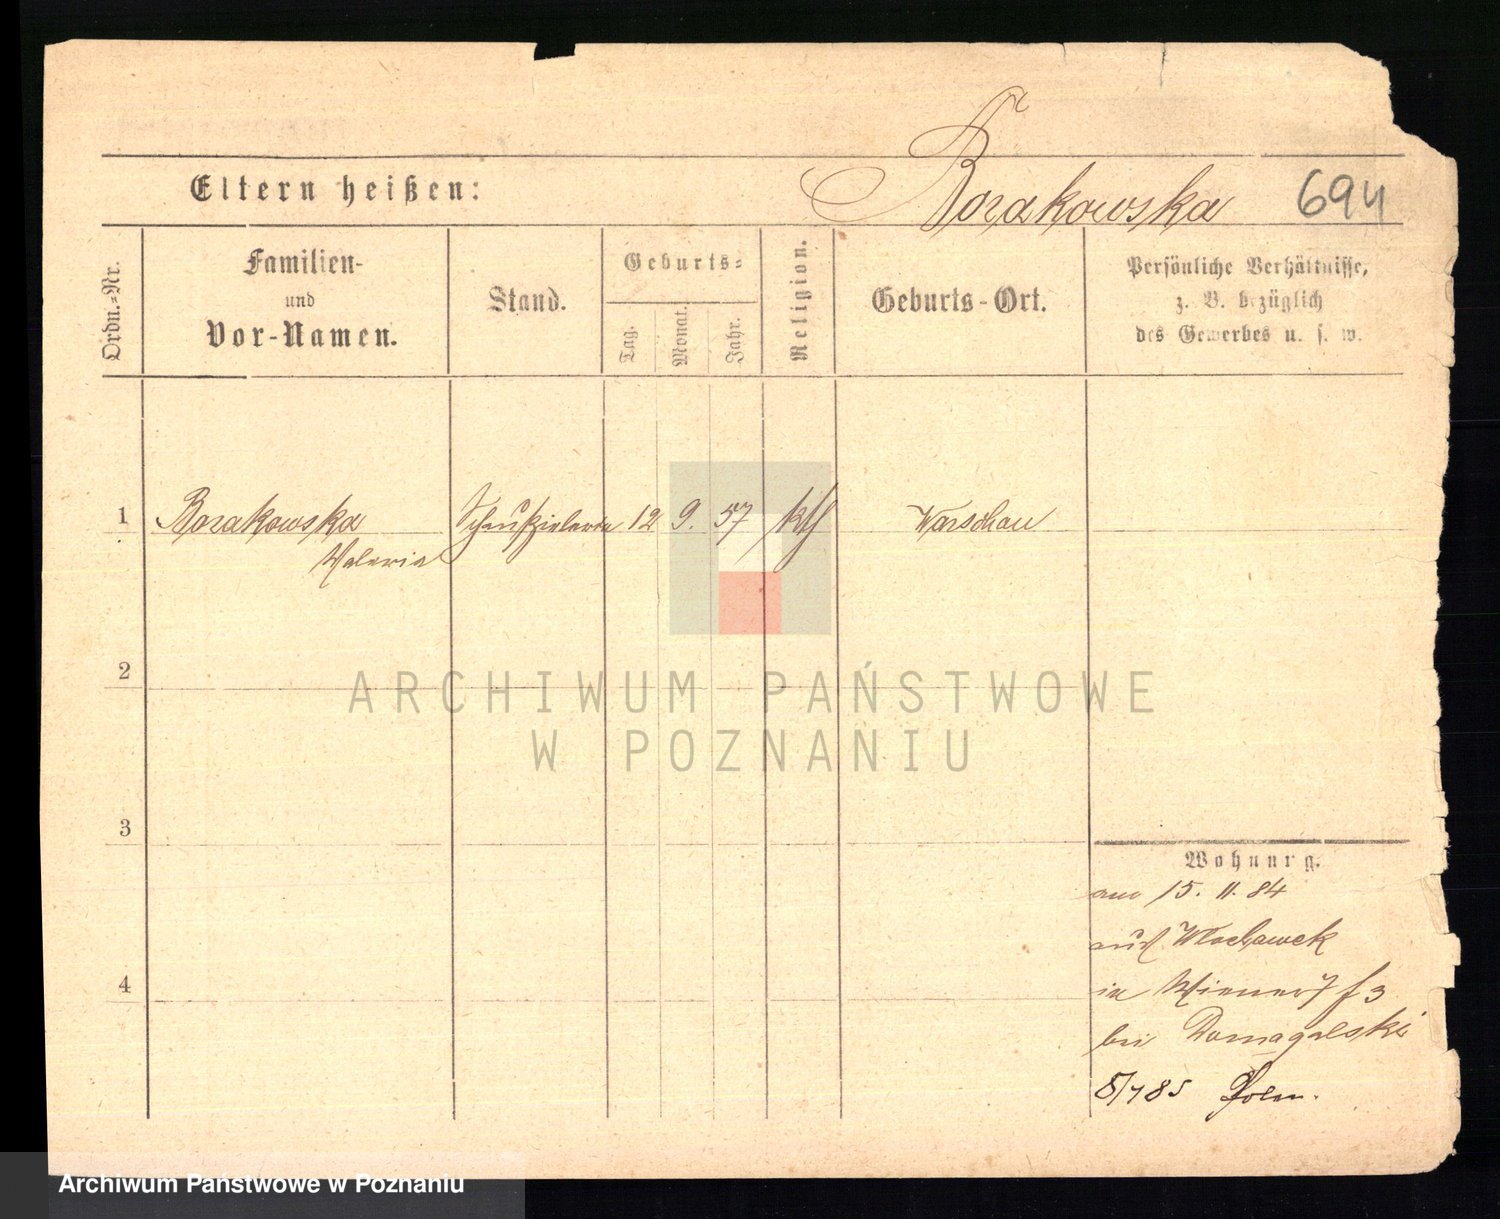 Borakowska 694
Eltern heißen:
Ordn.-Nr.
Familien-
und
Vor-Namen.
Stand.
Geburts-
Tag.
Monat.
Jahr.
Religion.
Geburts-Ort.
Persönliche Verhältnisse,
z. B. bezüglich
des Gewerbes u. s. w.
1 Borakowska Schauspielerin 12 9. 57 kth Warschau
Valeria
2
ARCHIWUM PAŃSTWOWE
W POZNANIU
3
Wohnung.
am 15. 11. 84
aus Wloclawek
in Wiener
bei Domagalski
Polen.
4
Archiwum Państwowe w Poznaniu